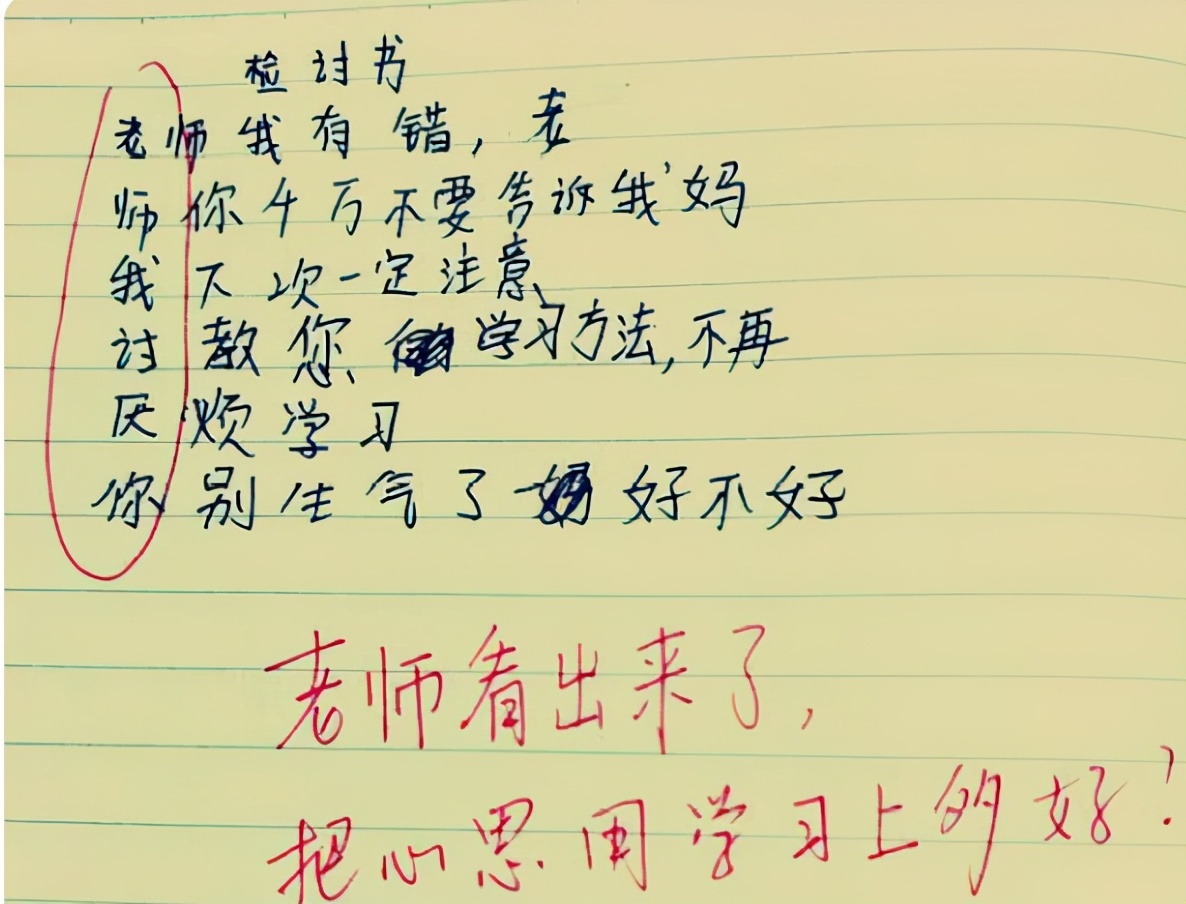 检讨书
老师我有错,老
师你千万不要告诉我妈
我下次一定注意、
讨教您、学习方法,不再
厌烦学习
你别生气了 好不好
老师看出来了,
把心思用学习上的好!